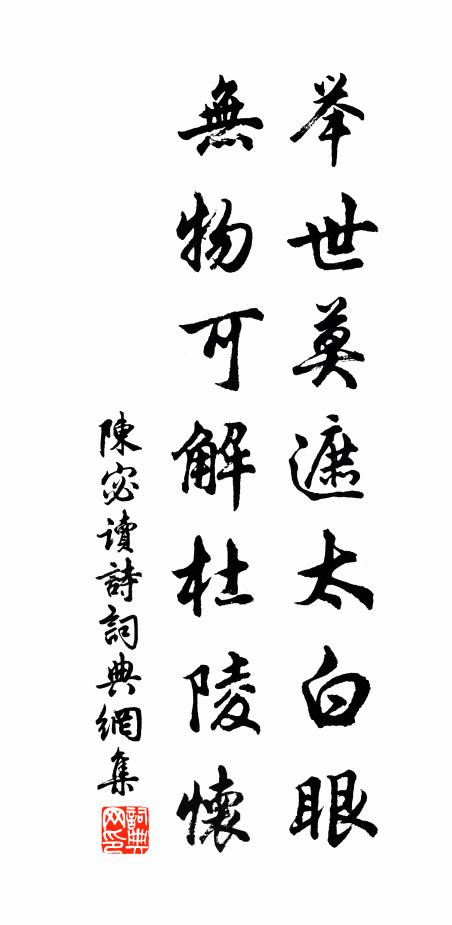 举世莫遮太白眼
無物可解杜陵懷
陳宓讀詩詞典網集
詞典网印